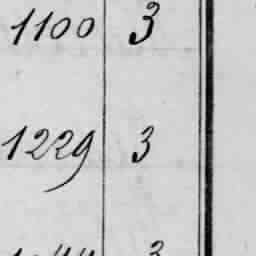 1100 3
1229 3
3